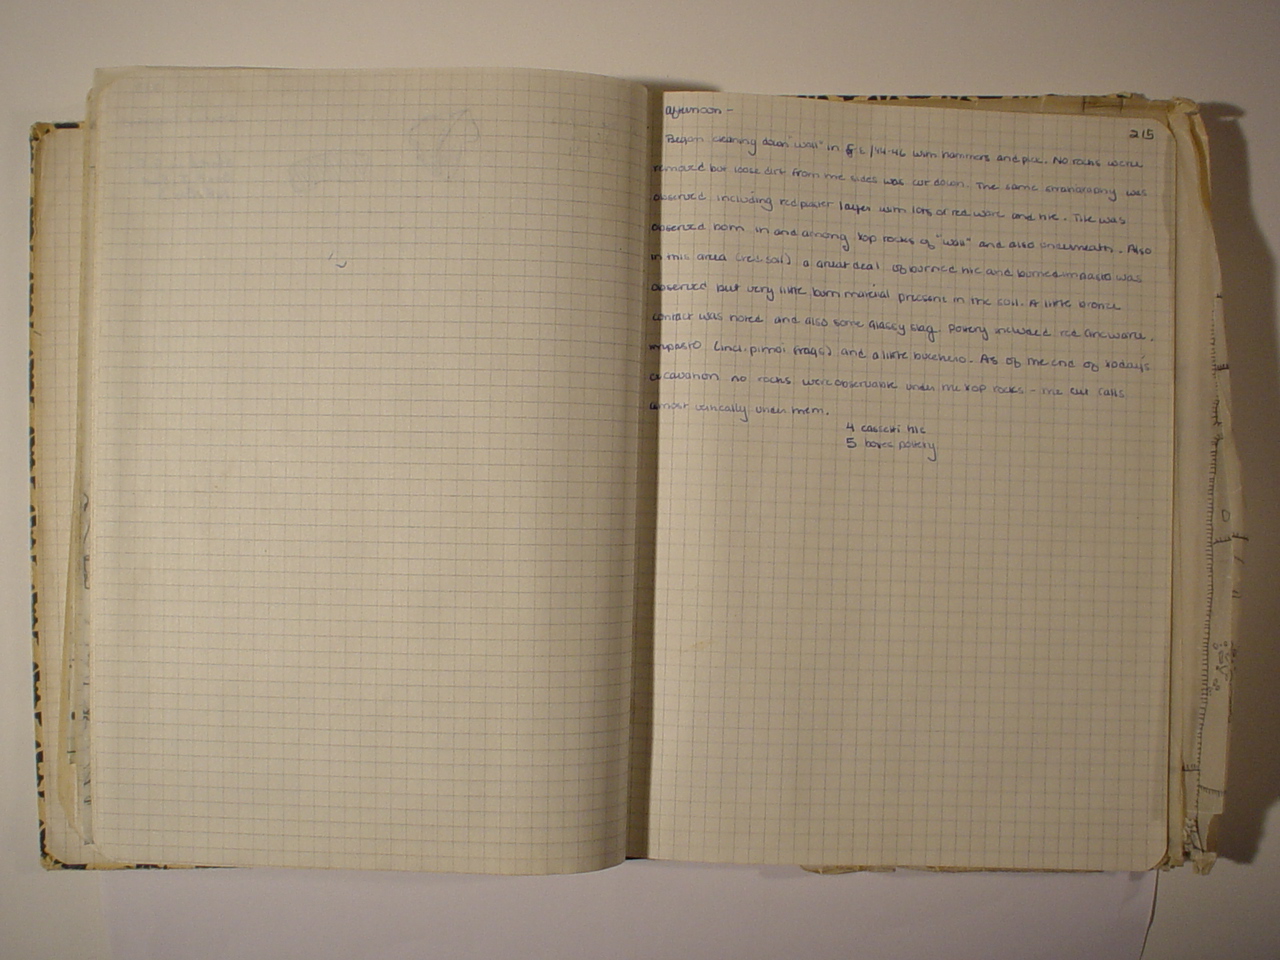 afternoon -
215
Began cleaning down "wall" in G-L/44-46 with hammers and pick. No rocks were
removed but loose dirt from the sides was cut down. The same stratigraphy was
observed including red plaster layer with lots of red ware and tile. Tile was
observed both in and among top rocks of "wall" and also underneath. Also
in this area (red soil) a great deal of burned tile and burned impasto was
observed but very little burn material present in the soil. A little bronze
was noted and also some glassy slag. Pottery included red fineware,
impasto (incl. pithoi frags) and a little bucchero. As of the end of today's
excavation no rocks were observable under the top rocks - the cut falls
almost vertically under them.
4 cassetti tile
5 boxes pottery